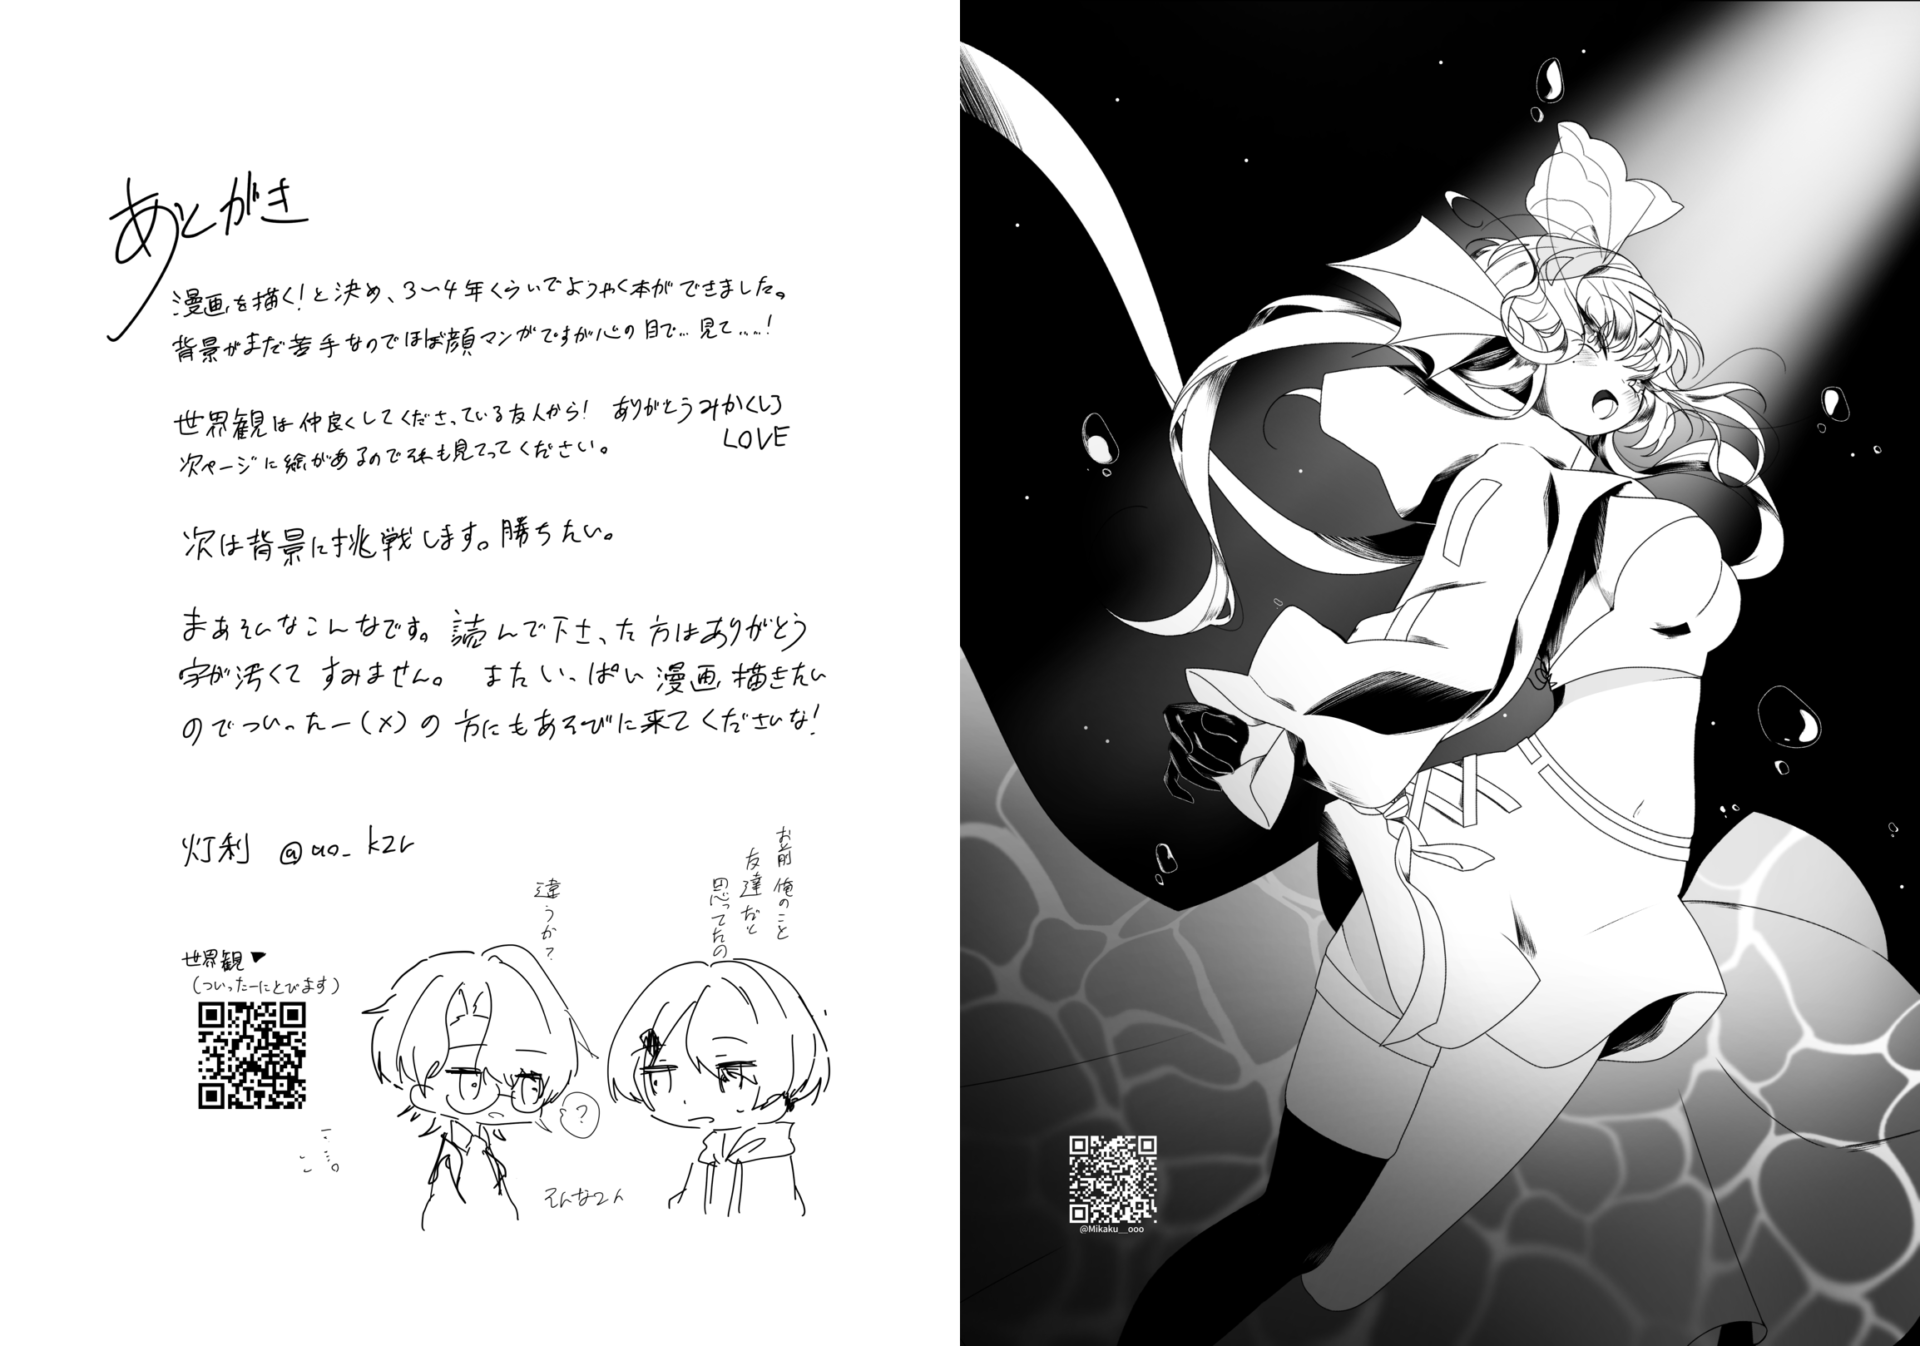 あとがき
漫画を描く!と決め、3〜4年くらいでようやく本ができました。
背景がまだ苦手なのでほぼ顔マンガですが心の目で…見て……!
世界観は仲良くしてくださっている友人から! ありがとうみかくしろ
LOVE
次ページに絵があるのでそれも見てってください。
次は背景に挑戦します。勝ちたい。
まぁそんなこんなです。読んで下さった方はありがとう
字が汚くてすみません。またいっぱい漫画描きたい
のでついったー(X)の方にもあそびに来てくださいな!
灯利 @ao_kzr
お前俺のこと
友達だと
思ってたの
違うか?
世界観▼
(ついったーにとびます)
?
そんな2人
@Mikaku__ooo